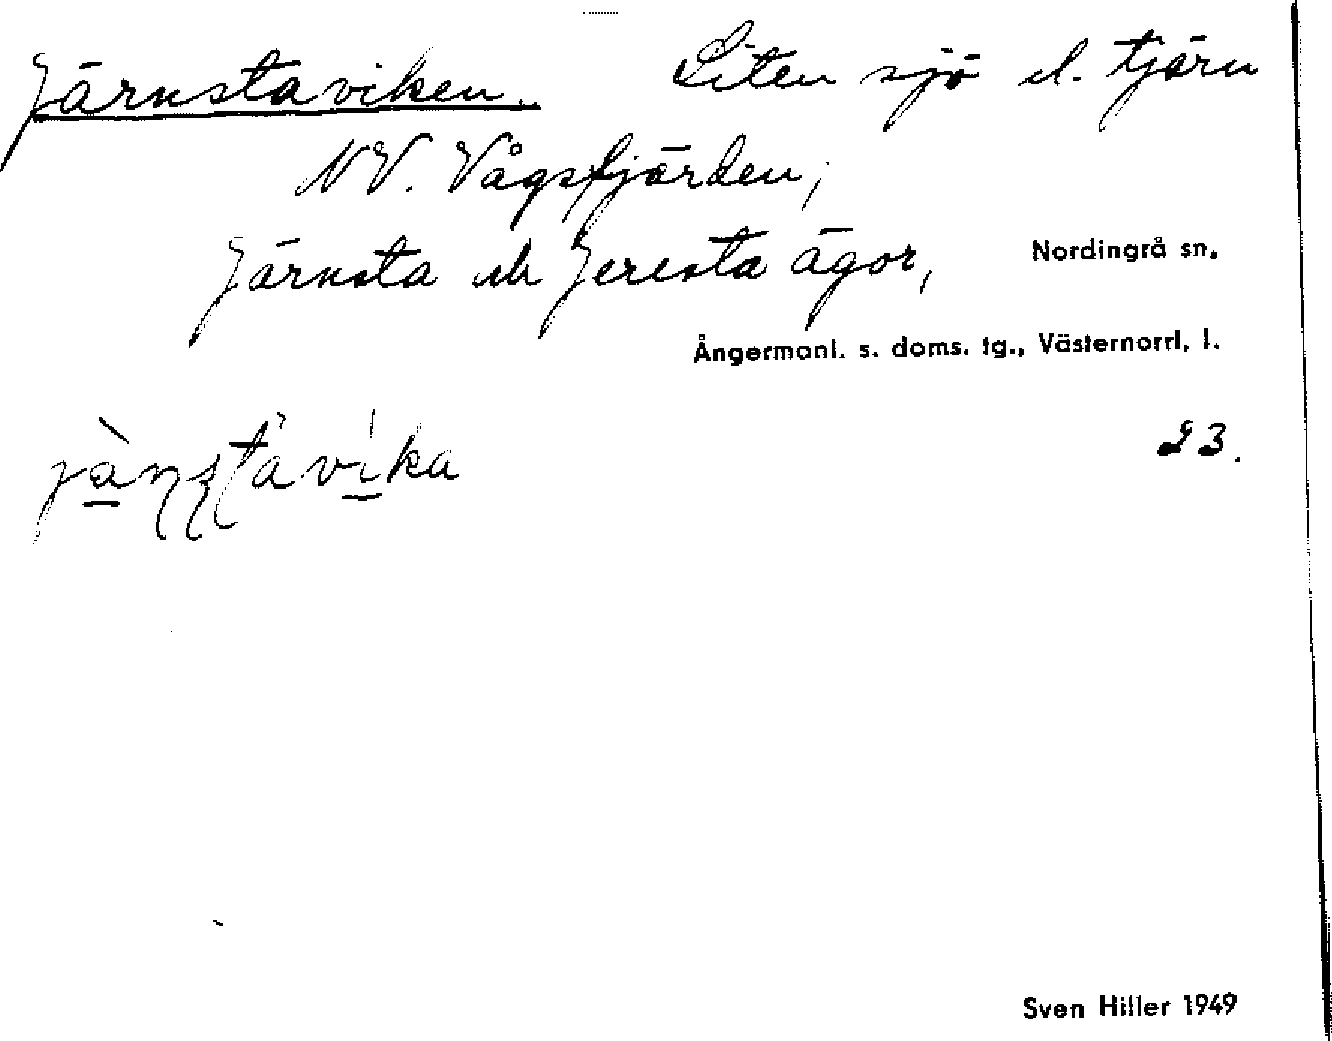 Järnstaviken. Liten sjö el. tjärn
NV. Vågsfjärden,
Järnsta och Jeresta ägor, Nordingrå sn.
Ångermanl. s. doms. tg., Västernorrl. l.
23.
Sven Hiller 1949